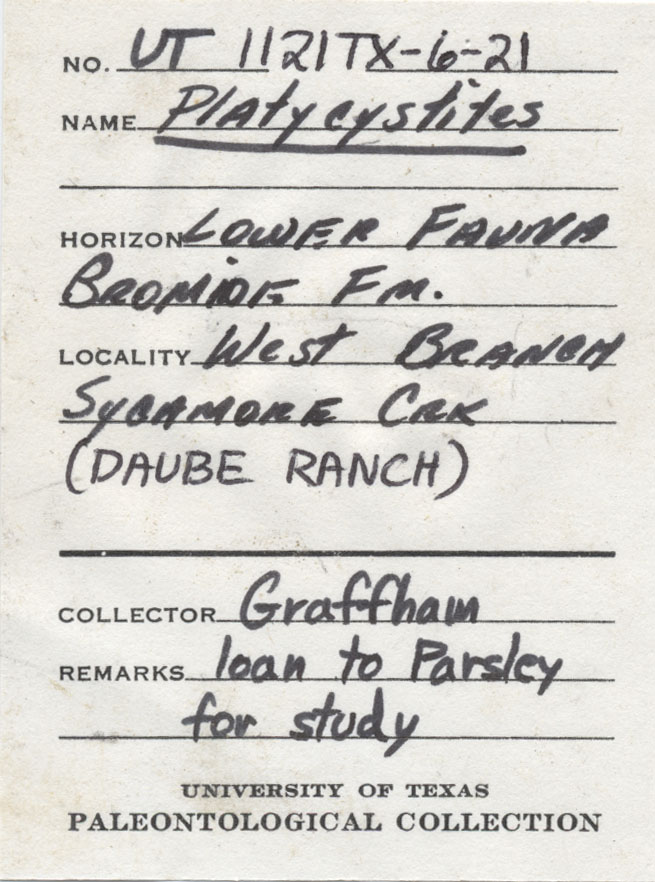 NO. UT 1121TX-6-21
NAME Platycystites
HORIZON LOWER FAUNA
BROMIDE FM.
LOCALITY West BRANCH
SYCAMORE CRK
(DAUBE RANCH)
COLLECTOR Graffham
REMARKS loan to Parsley
for study
UNIVERSITY OF TEXAS
PALEONTOLOGICAL COLLECTION